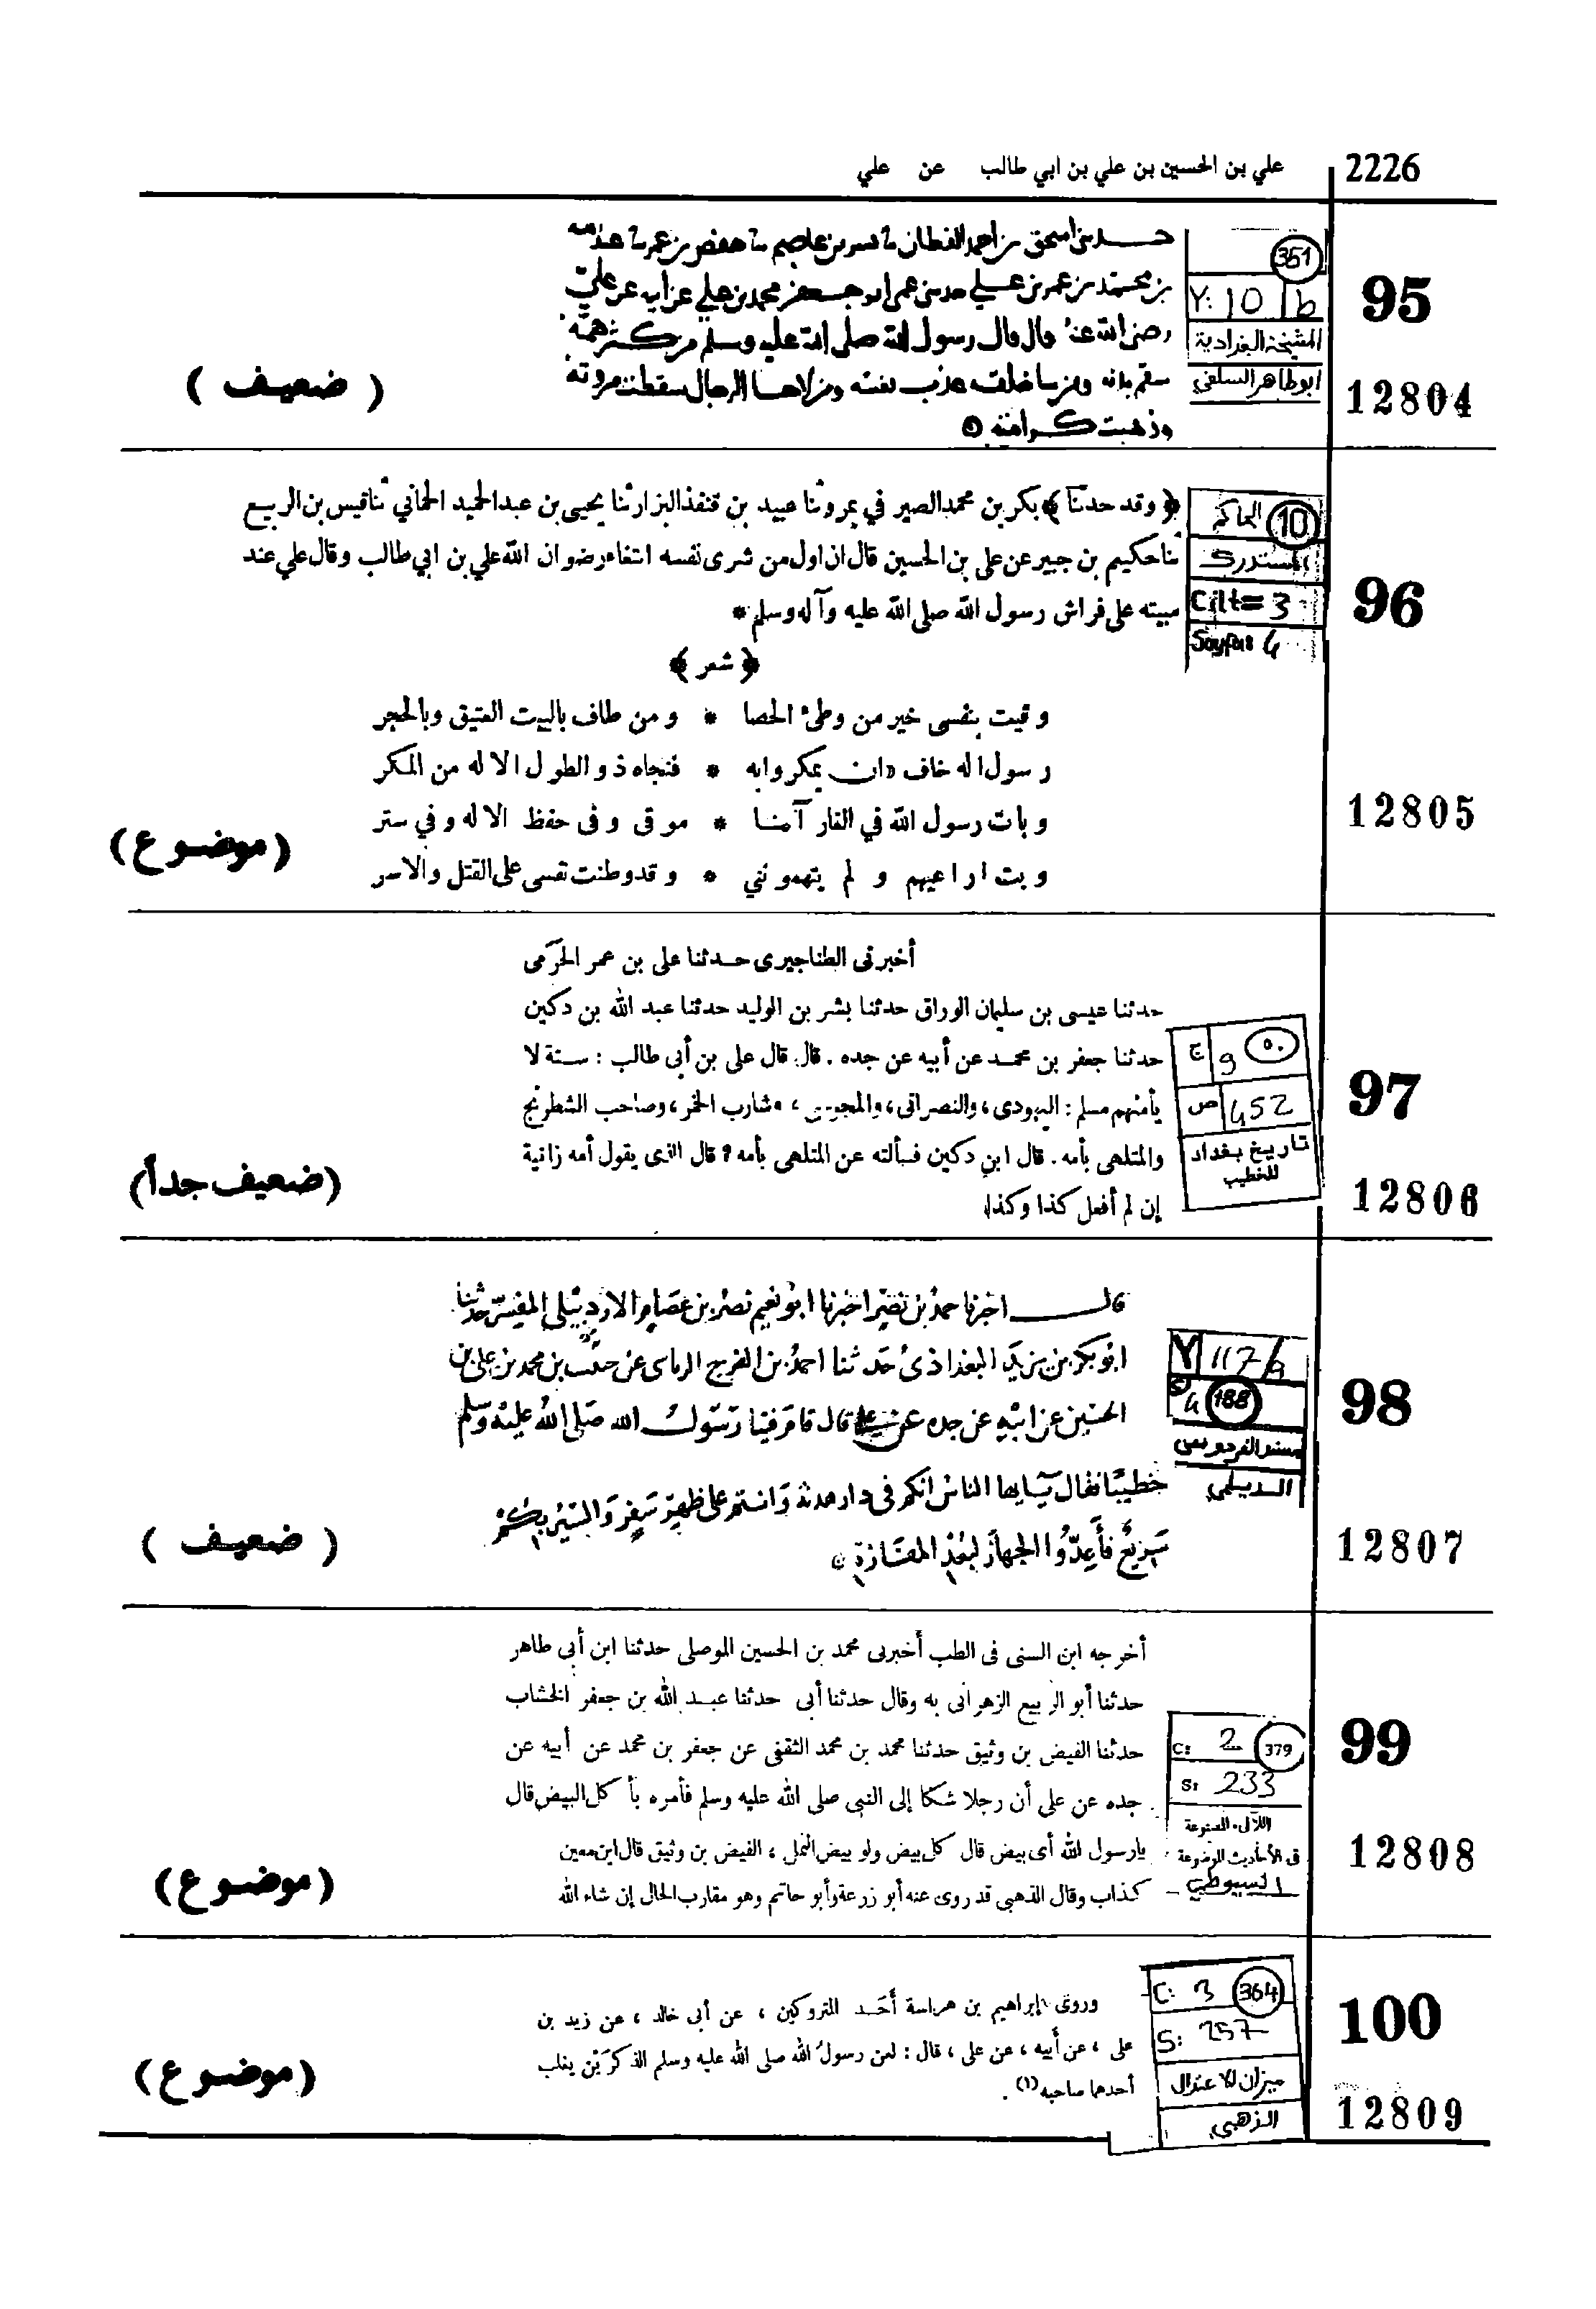 2226
علي بن الحسين بن علي بن ابي طالب عن علي
95
351
Y: 10 1b
المشيخة البغدادية
ابو طاهر السلفي
12804
رضى الله عنه قال قال رسول الله صلى الله عليه وسلم من كثر همّه
سقم بدنه ومن ساخلقه عذب نفسه ومن لاحا الرجال سقطت مروته
وذهبت كرامته
( ضعيف )
96
10
الحاكم
المستدرك
Cilt= 3
Sayfası 4
12805
﴿ وقد حدثنا ﴾ بكر بن محمد الصير في بمرو ثنا عبيد بن قنفذ البزار ثنا يحيى بن عبد الحميد الحماني ثنا قيس بن الربيع
ثنا حكيم بن جبير عن على بن الحسين قال ان اول من شرى نفسه ابتغاء رضوان الله علي بن ابي طالب وقال علي عند
مبيته على فراش رسول الله صلى الله عليه وآله وسلم *
﴿ شعر ﴾
وقيت بنفسى خير من وطئ الحصا * ومن طاف بالبيت العتيق وبالحجر
رسول اله خاف ان يمكروا به * فنجاه ذو الطول الا له من المكر
وبات رسول الله في الغار آمنا * موقى وفى حفظ الا له وفي ستر
وبت اراعيهم ولم يتهمونني * وقد وطنت نفسى على القتل والاسر
(موضوع)
97
٥٠
ج 9
ص 452
تاريخ بغداد
للخطيب
12806
أخبرنى الطناجيرى حدثنا على بن عمر الحرمى
حدثنا عيسى بن سليمان الوراق حدثنا بشر بن الوليد حدثنا عبد الله بن دكين
حدثنا جعفر بن محمد عن أبيه عن جده . قال قال على بن أبى طالب : ستة لا
يأمنهم مسلم : اليهودى ، والنصرانى ، والمجوسى ، وشارب الخمر ، وصاحب الشطرنج
والمتلهى بأمه . قال ابن دكين فسألته عن المتلهى بأمه ؟ قال الذى يقول أمه زانية
إن لم أفعل كذا وكذا
(ضعيف جداً)
98
Y 117/a
188
مسند الفردوس
الديلمي
12807
قال اخبرنا حمد بن نصر اخبرنا ابو نعيم نصر بن عصام الاردبيلى المفسر حدثنا
الحسين عن ابيه عن جده عن علي قال قام فينا رسول الله صلى الله عليه وسلم
خطيبًا فقال يا ايها الناس انكم فى دار هدنة وانتم على ظهر سفر والسير بكم
سريع فأعدّوا الجهاز لبعد المفازة
( ضعيف )
99
C: 2
379
S: 233
اللآلى المصنوعة
فى الأحاديث الموضوعة
السيوطي
12808
أخرجه ابن السنى فى الطب أخبرنى محمد بن الحسين الموصلى حدثنا ابن أبى طاهر
حدثنا أبو الربيع الزهرانى به وقال حدثنا أبى حدثنا عبد الله بن جعفر الخشاب
حدثنا الفيض بن وثيق حدثنا محمد بن محمد الثقفى عن جعفر بن محمد عن أبيه عن
جده عن على أن رجلا شكا إلى النبى صلى الله عليه وسلم فأمره بأكل البيض قال
يارسول الله أى بيض قال كل بيض ولو بيض النمل ، الفيض بن وثيق قال ابن معين
كذاب وقال الذهبى قد روى عنه أبو زرعة وأبو حاتم وهو مقارب الحال إن شاء الله
(موضوع)
100
C: 3
364
S: 257
ميزان الاعتدال
الذهبي
12809
وروى إبراهيم بن هراسة أحد المتروكين ، عن أبى خالد ، عن زيد بن
على ، عن أبيه ، عن على ، قال : لعن رسول الله صلى الله عليه وسلم الذكرَيْن يغلب
أحدهما صاحبه (١) .
(موضوع)